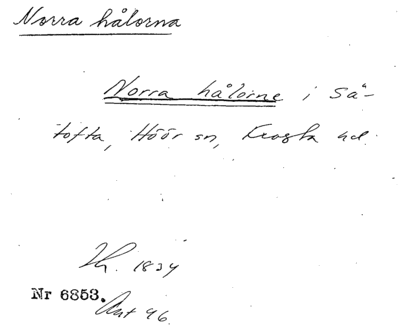 Norra hålorna
Norra hålorne i Så-
tofta, Höör sn, Frosta hd.
Lh. 1834
Nr 6853.
Akt 96.